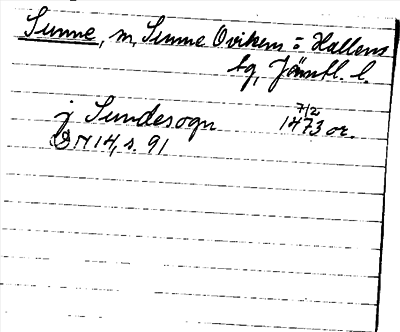 Sunne, m, Sunne Ovikens o Hallens
tg, Jämtl. l.
j Sundesogn 7/2 1473 or.
DN 14, s. 91